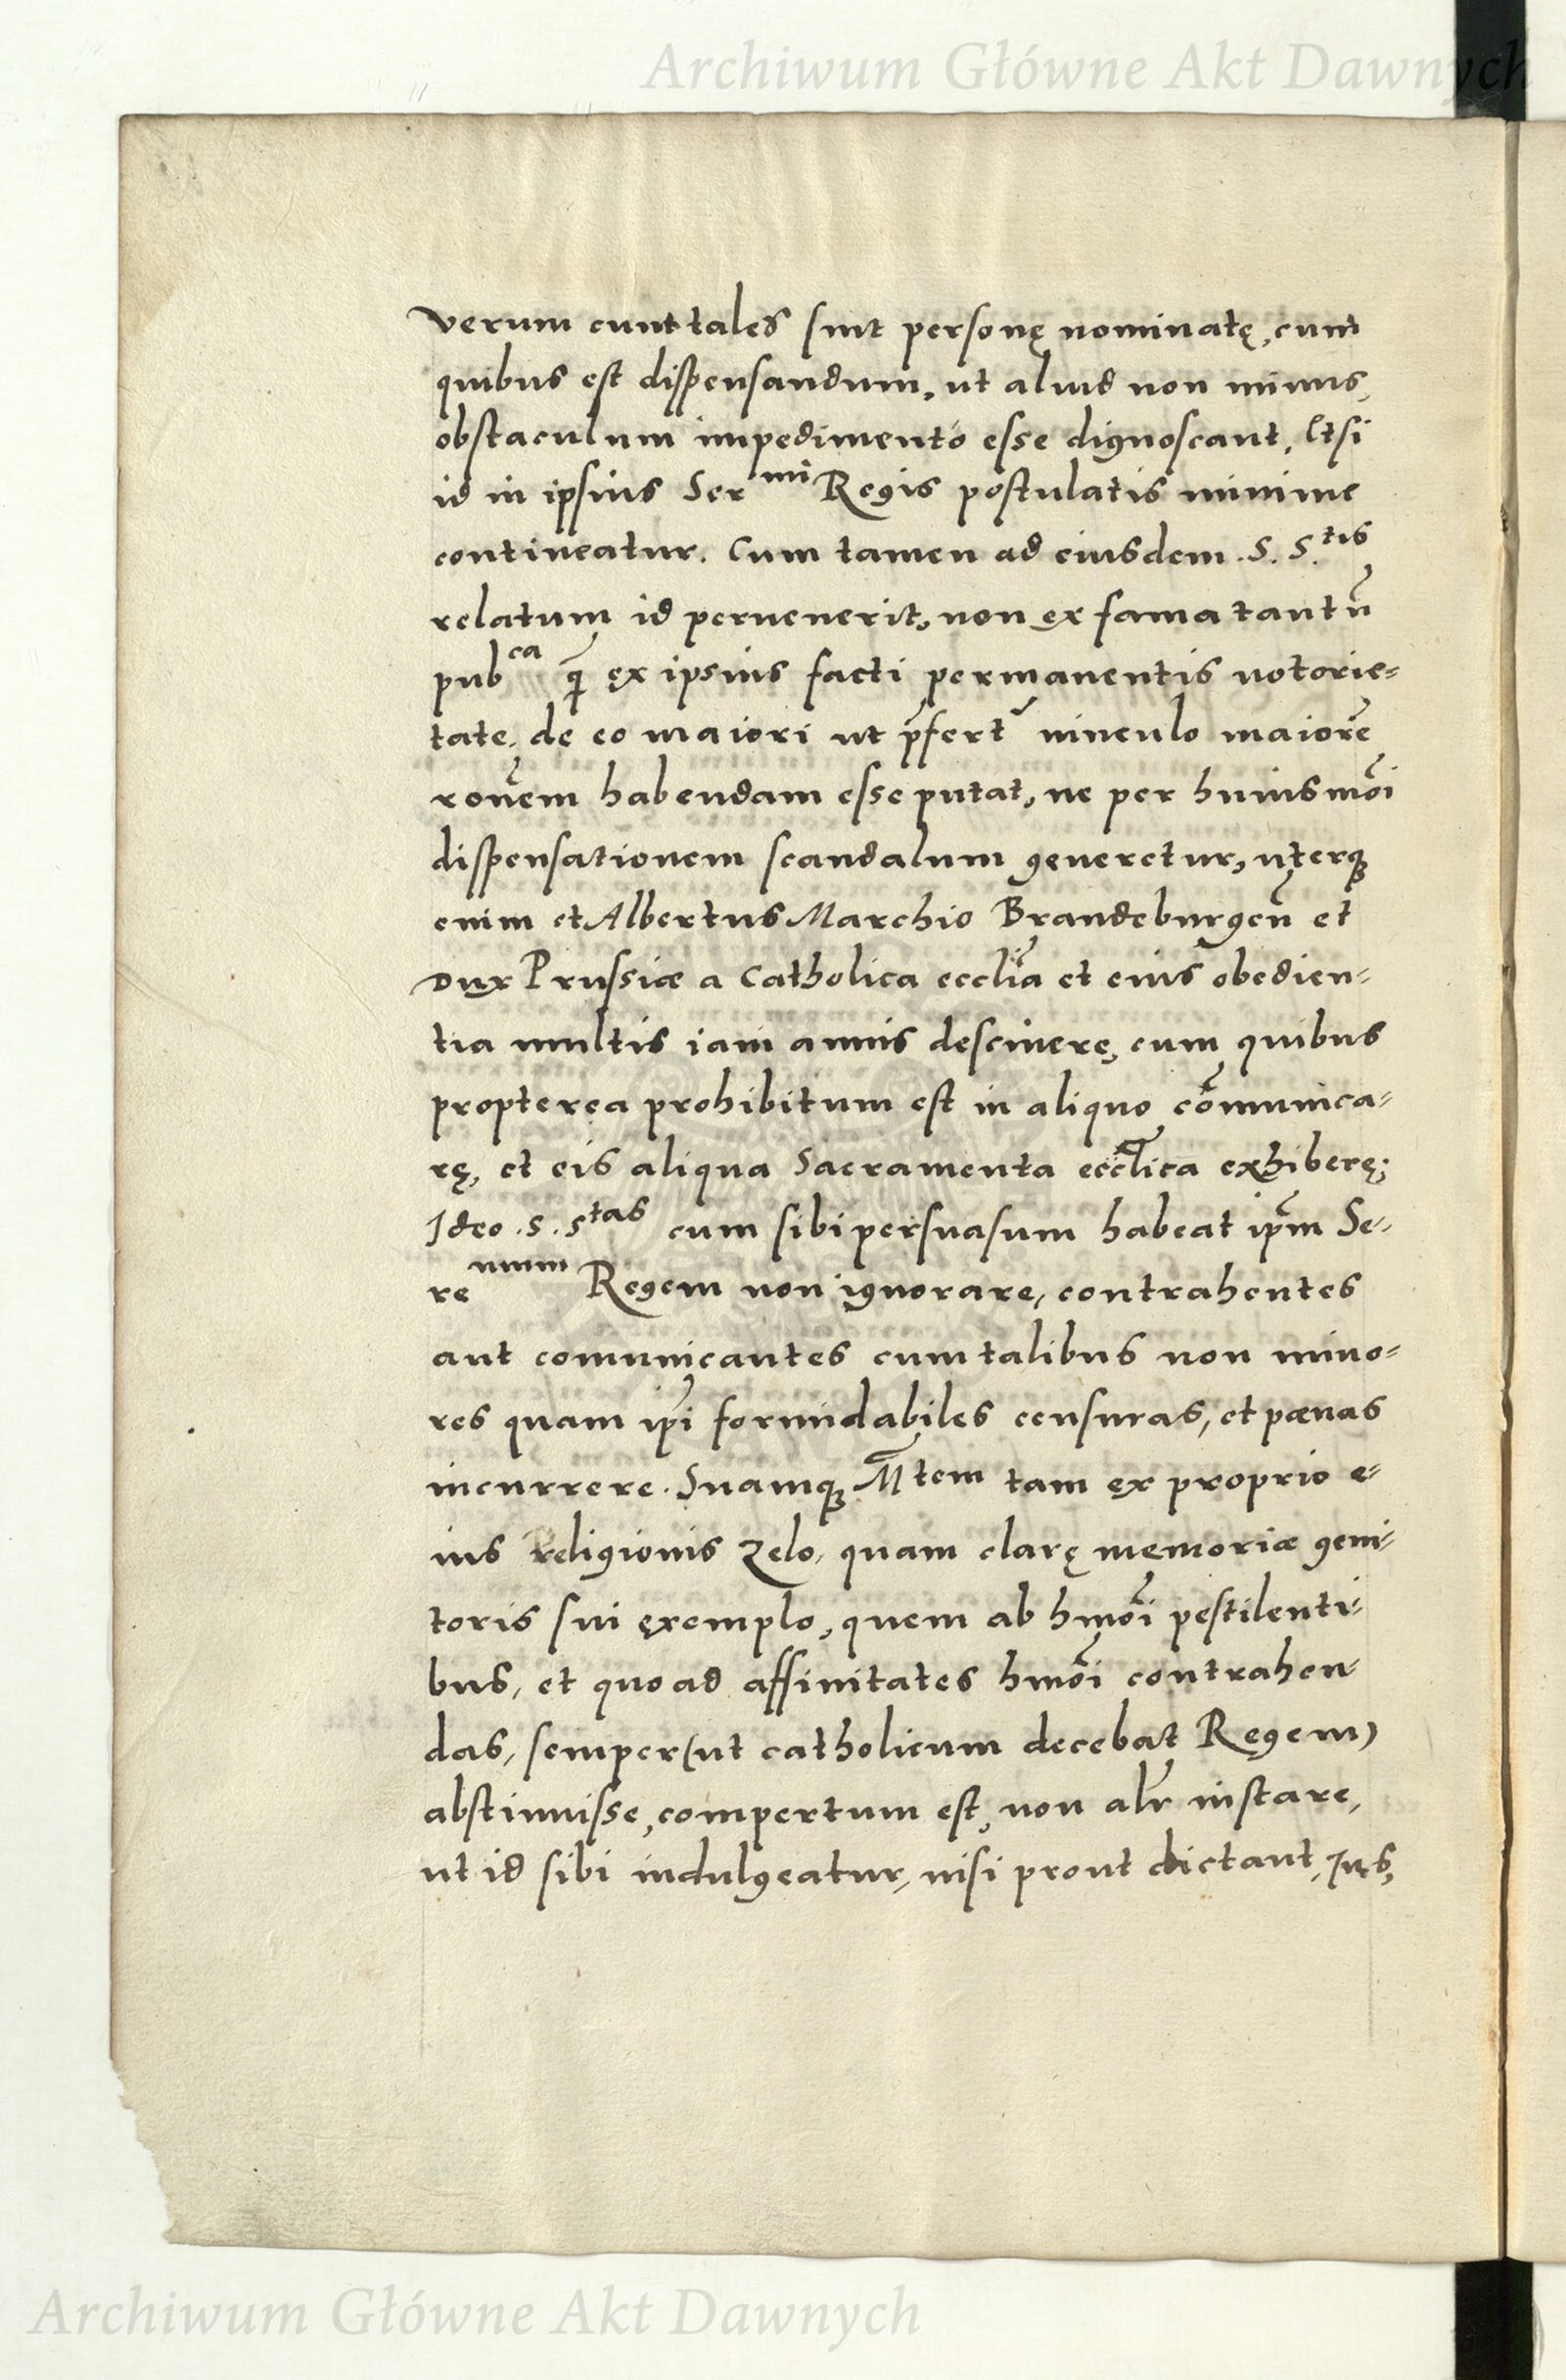 Archiwum Główne Akt Dawnych
verum cum tales sint personę nominatę, cum
quibus est dispensandum, ut aliud non minus,
obstaculum impedimento esse dignoscant, Etsi
id in ipsius Ser^mi Regis postulatis minime
contineatur. Cum tamen ad eiusdem .S. S.^tis
relatum id peruenerit, non ex fama tantũ
pub^ca q̃ ęx ipsius facti permanentis notorie=
tate, de eo maiori ut p̃fert~ uinculo maiorẽ
roñem habendam esse putat, ne per huiusmõi
dispensationem scandalum generetur, uterq;
enim et Albertus Marchio Brandeburgeñ et
Dux Prussiæ a Catholica eccl̃ia et eius obedien=
tia multis iam annis desciuerę, cum quibus
propterea prohibitum est in aliquo cõmunica=
rę, et eis aliqua Sacramenta eccl̃ica exhiberę;
Ideo .S. S^tas cum sibi persuasum habeat ip̃m Se=
re^nmum Regem non ignorare, contrahentes
aut comunicantes cum talibus non mino=
res quam ip̃i formidabiles censuras, et pœnas
incurrere. Suamq; M^tem tam ex proprio e=
ius religionis zelo, quam clarę memoriæ geni=
toris sui exemplo, quem ab hmõi pestilenti=
bus, et quo ad affinitates hmõi contrahen=
das, semper (ut catholicum decebat Regem)
abstinuisse, compertum est, non alr̃ instare,
ut id sibi indulgeatur, nisi prout dictant, Jus,
Archiwum Główne Akt Dawnych